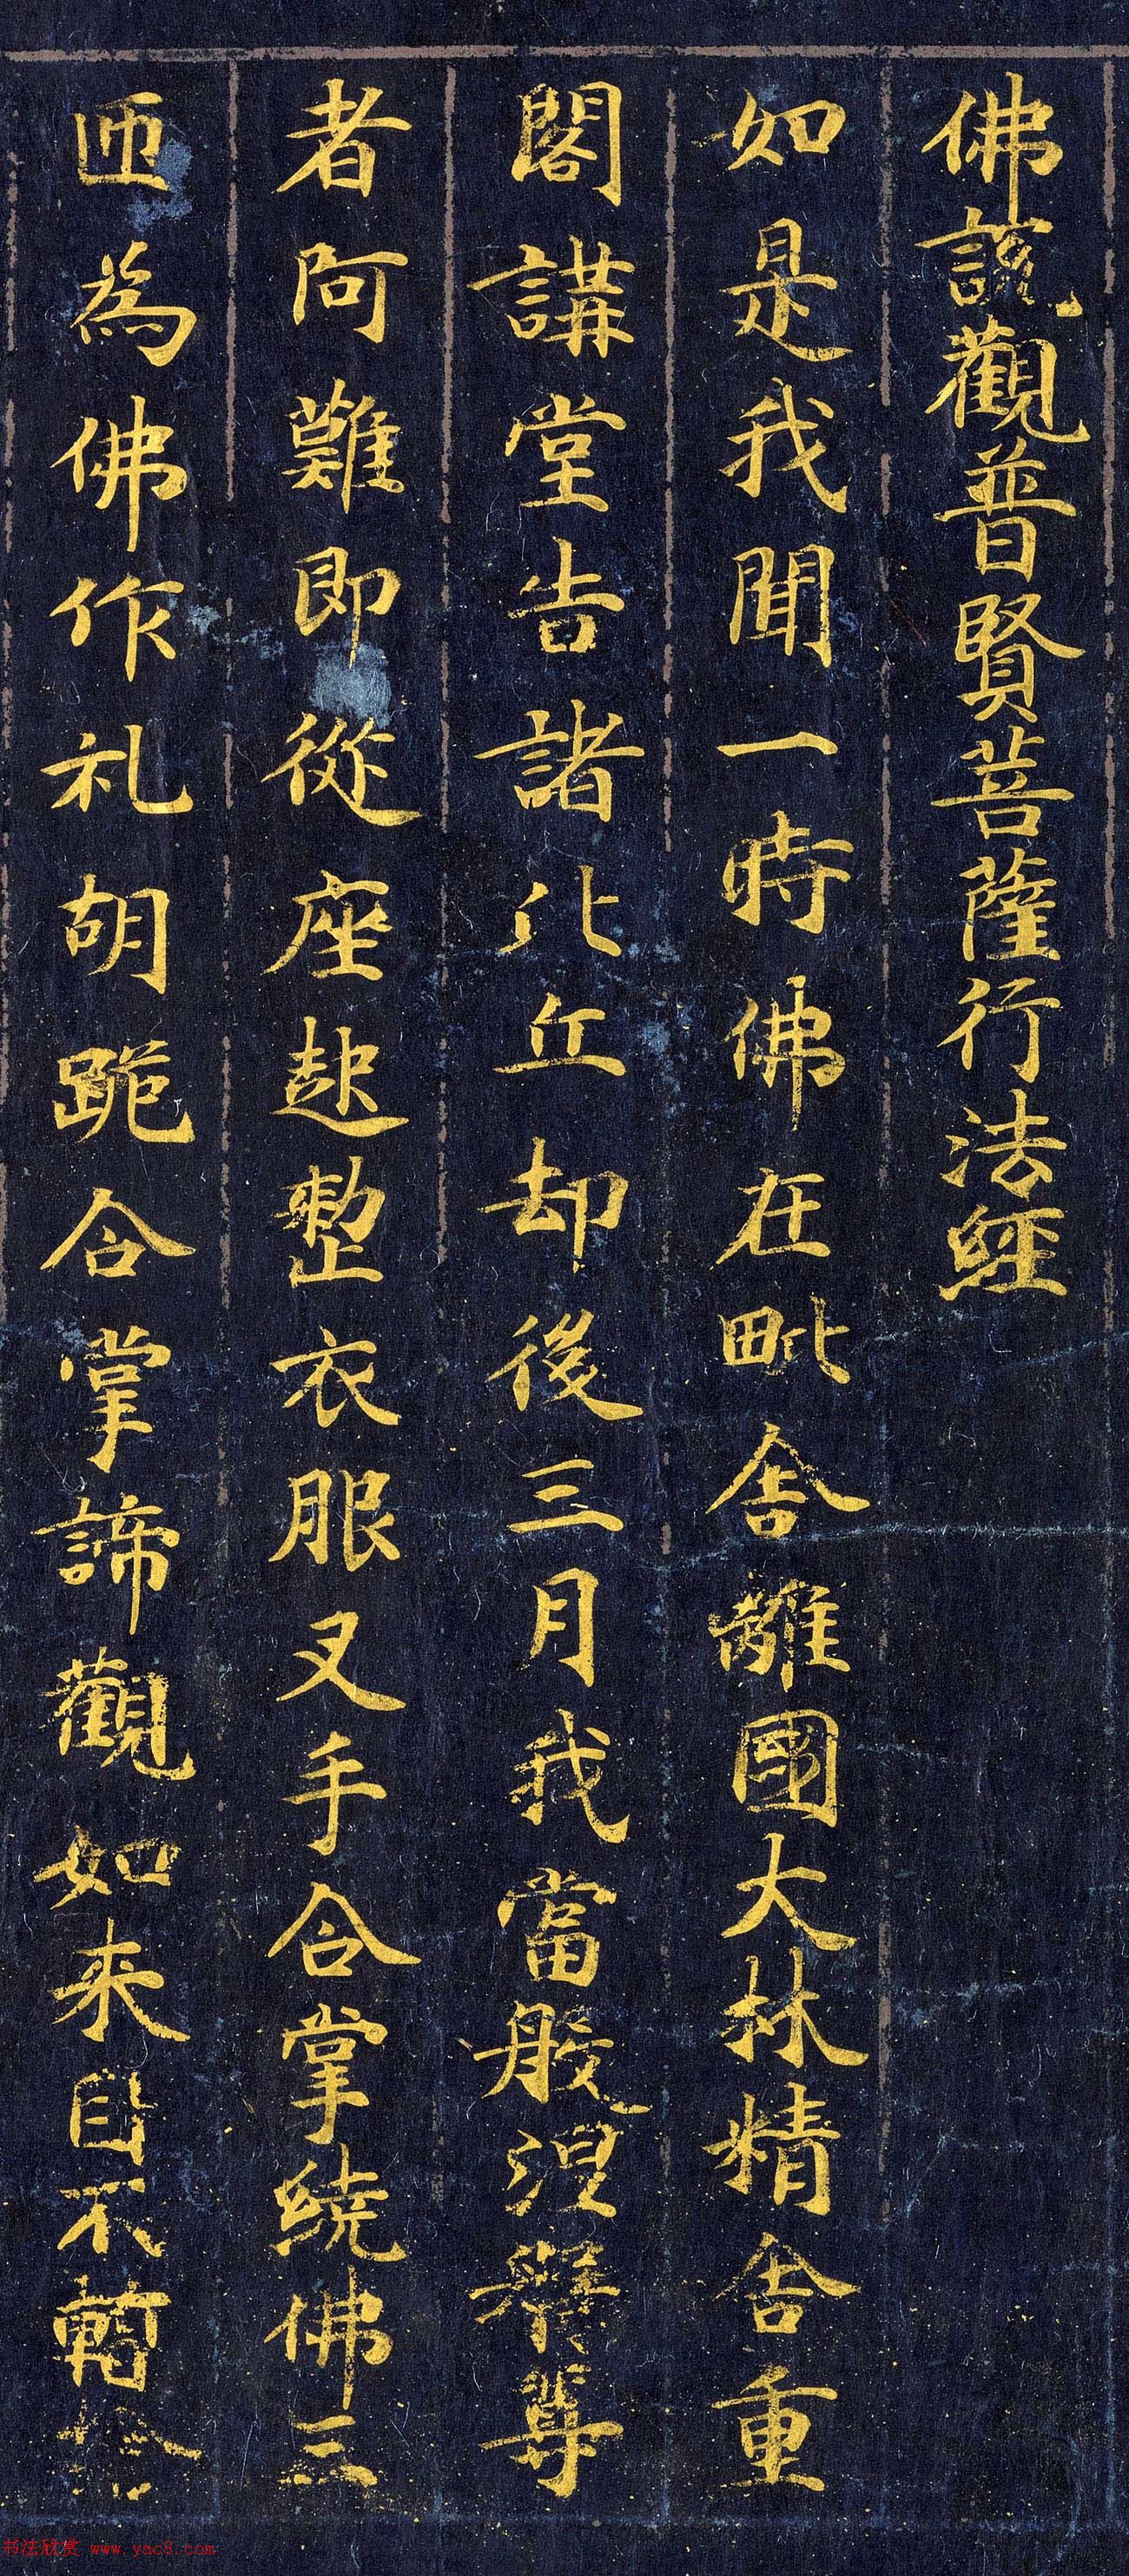 佛說觀普賢菩薩行法經
如是我聞一時佛在毗舍離國大林精舍重
閣講堂告諸比丘却後三月我當般涅槃尊
者阿難即從座起整衣服叉手合掌繞佛三
匝為佛作礼胡跪合掌諦觀如來目不暫捨
书法欣赏 www.yac8.com